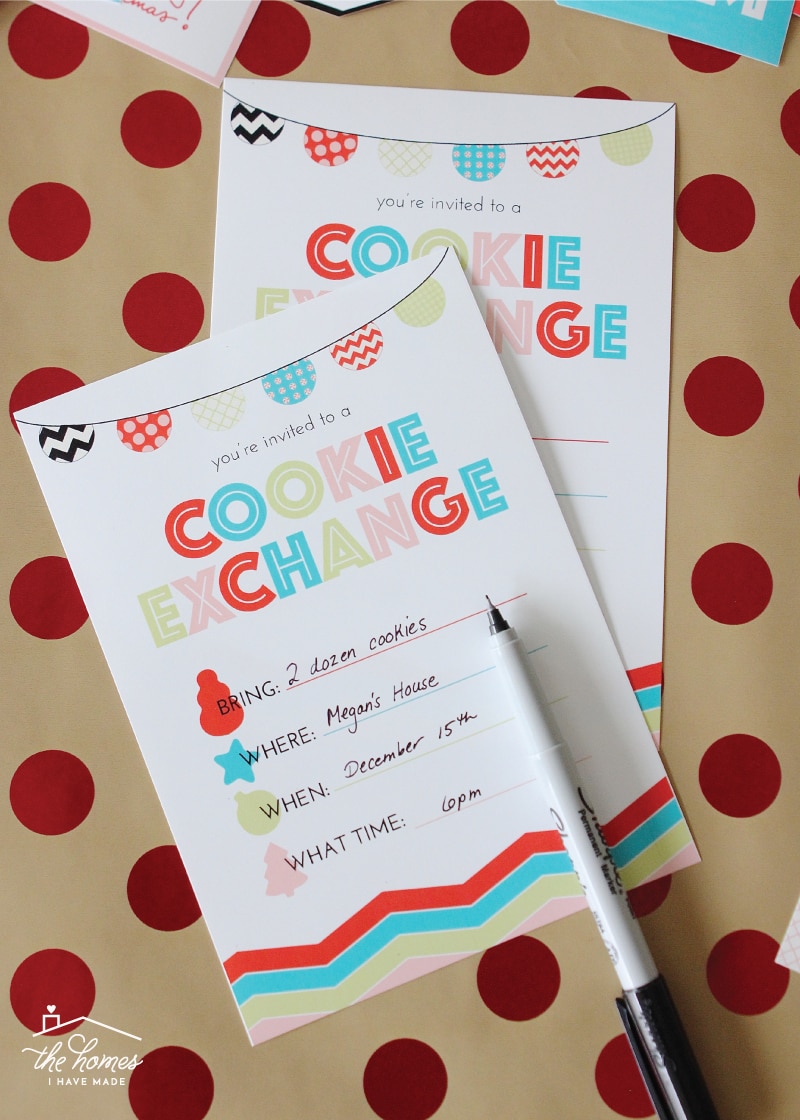 mas!
you're invited to a
COOKIE
EXCHANGE
you're invited to a
COOKIE
EXCHANGE
BRING: 2 dozen cookies
WHERE: Megan's House
WHEN: December 15th
WHAT TIME: 6pm
Permanent
Marker
the homes
I HAVE MADE